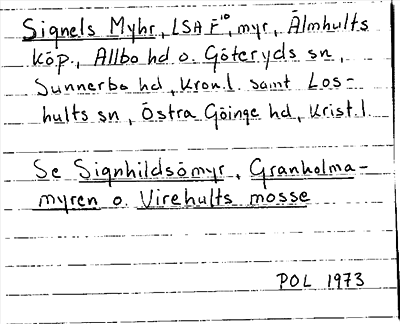 Signels Myhr, LSA F¹⁰, myr, Älmhults
köp., Allbo hd o. Göteryds sn,
Sunnerbo hd, Kron.l. samt Los-
hults sn, Östra Göinge hd, Krist.l.
Se Signhildsömyr, Granholma-
myren o. Virehults mosse
POL 1973